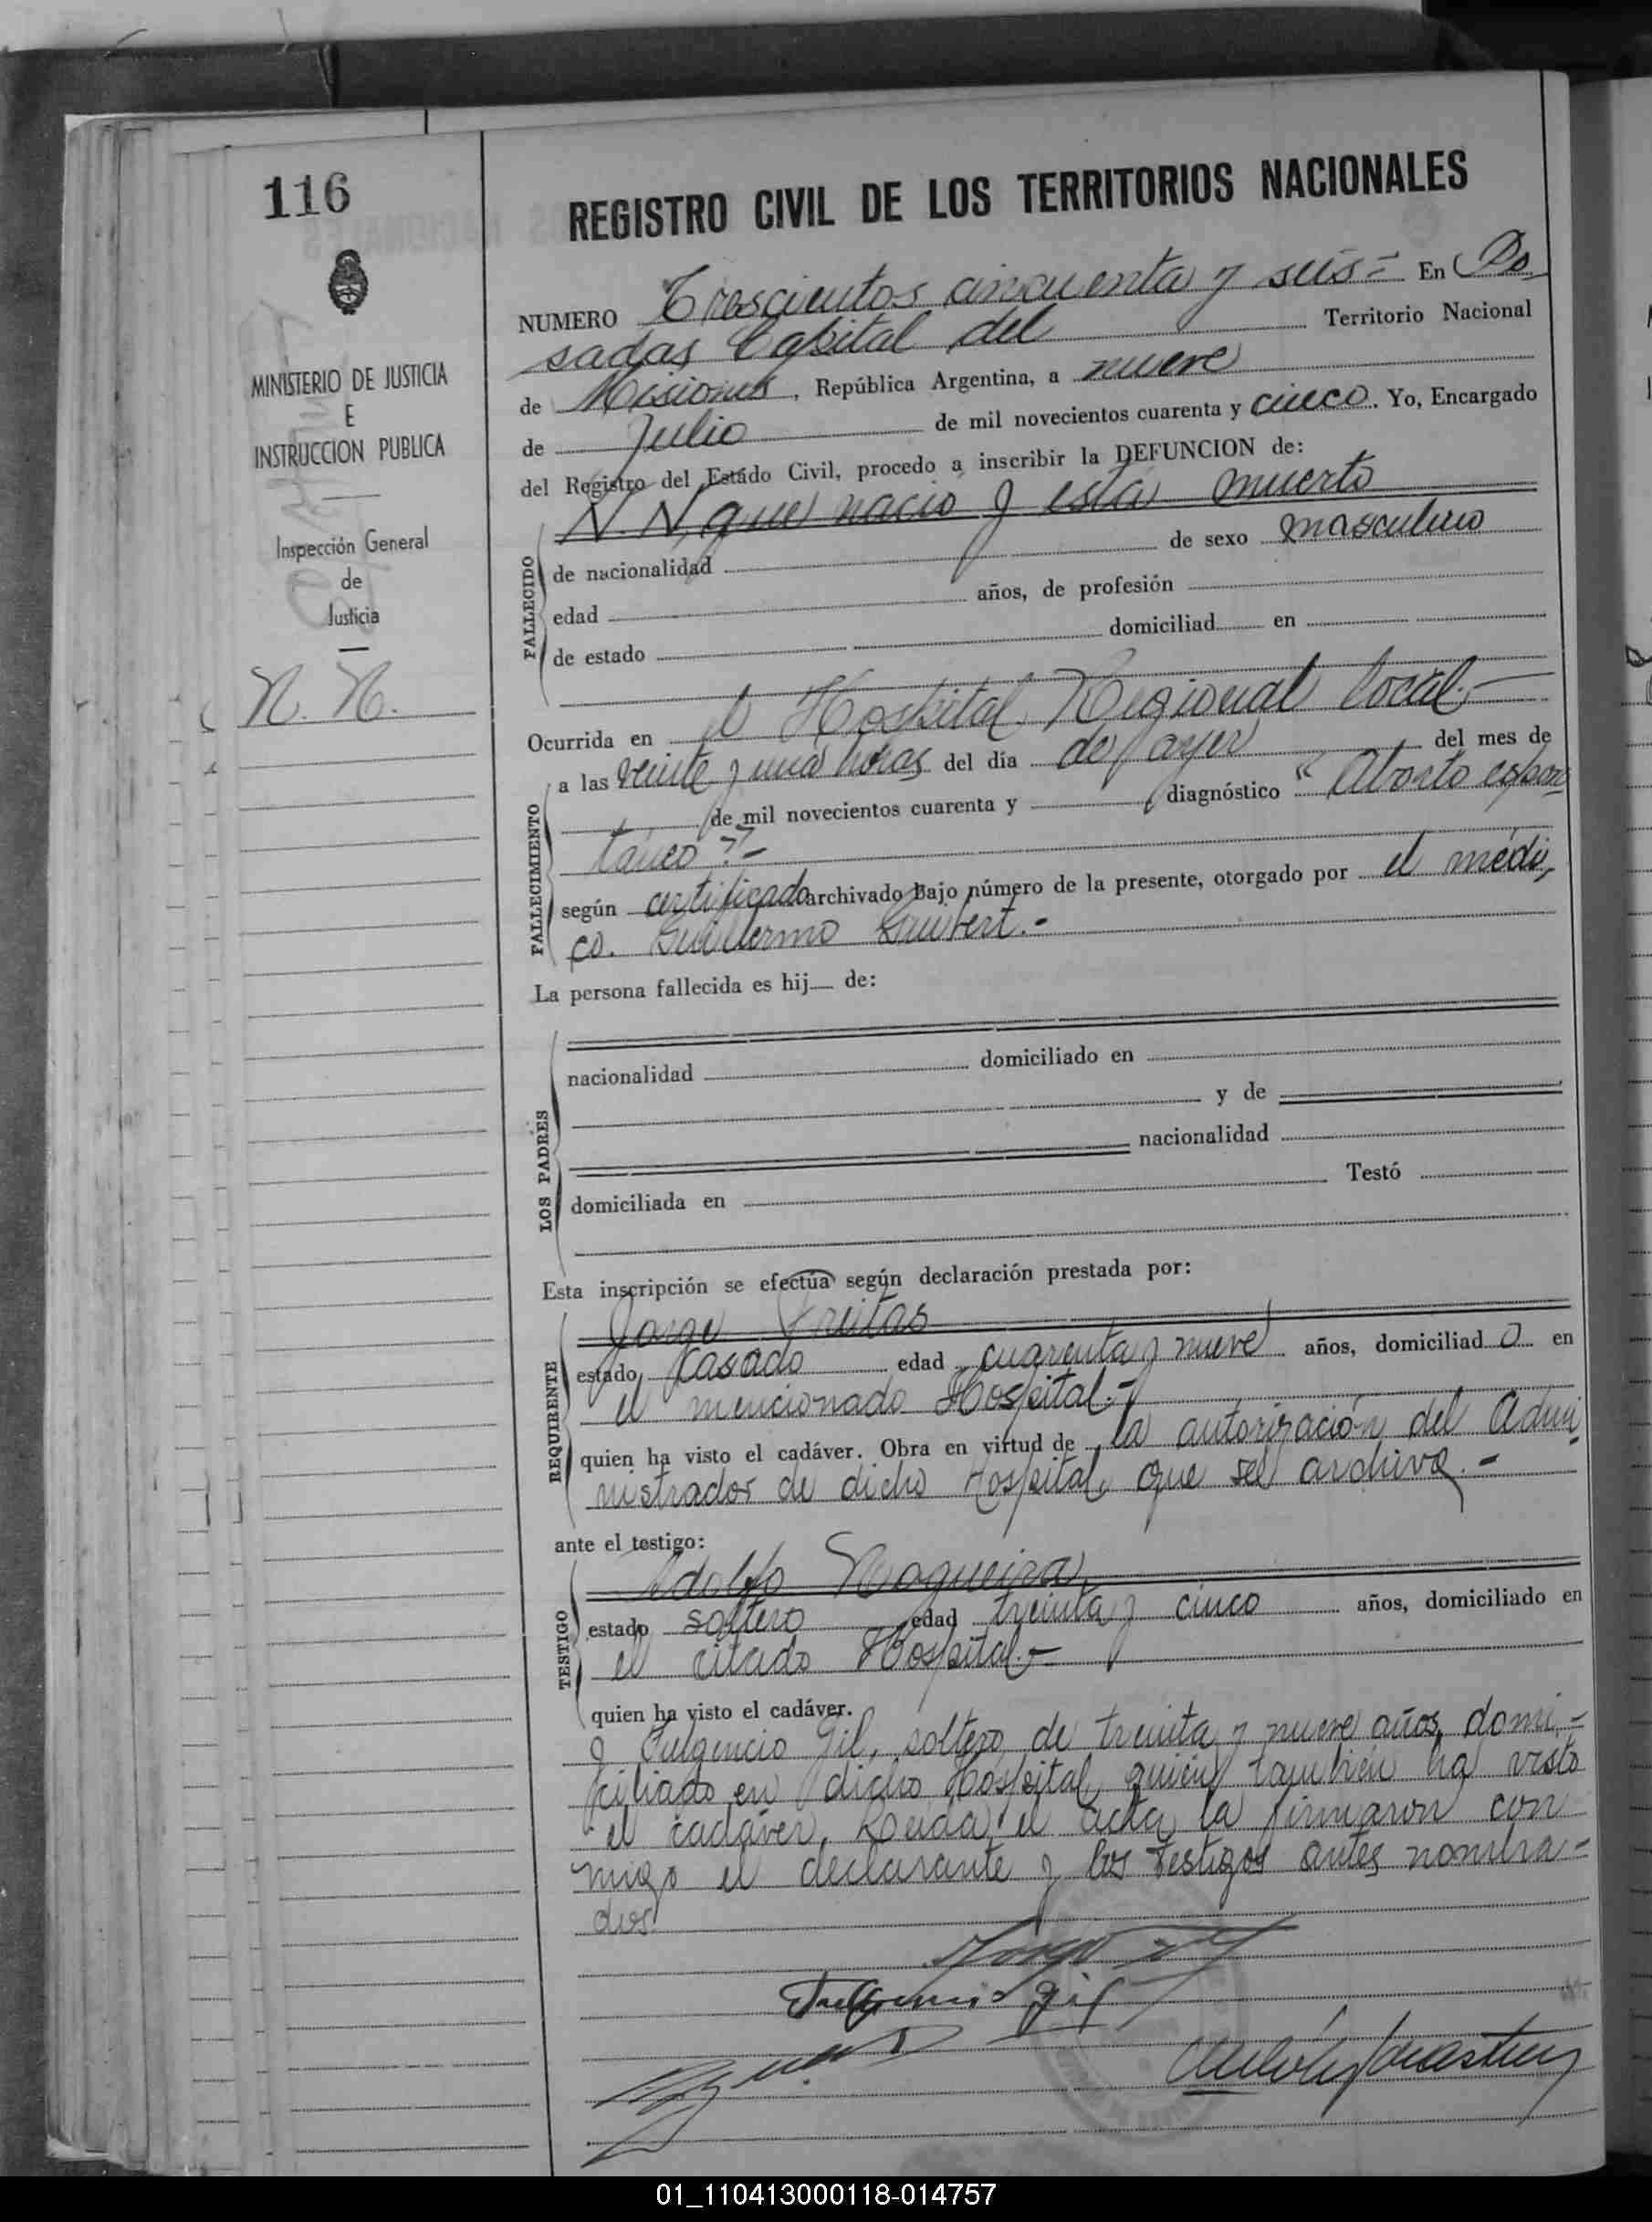 116
MINISTERIO DE JUSTICIA
E
INSTRUCCION PUBLICA
Inspección General
de
Justicia
N. N.
REGISTRO CIVIL DE LOS TERRITORIOS NACIONALES
NUMERO Trescientos cincuenta y seis = En Po
sadas Capital del Territorio Nacional
de Misiones, República Argentina, a nueve
de Julio de mil novecientos cuarenta y cinco. Yo, Encargado
del Registro del Estado Civil, procedo a inscribir la DEFUNCION de:
N. N, que nació y está muerto
FALLECIDO
de nacionalidad de sexo masculino
edad años, de profesión
de estado domiciliad en
Ocurrida en el Hospital Regional local.-
FALLECIMIENTO
a las veinte y una horas del día de ayer del mes de
de mil novecientos cuarenta y , diagnóstico "Aborto espon
táneo".-
según certificado archivado bajo número de la presente, otorgado por el médi,
co. Guillermo .-
La persona fallecida es hij de:
LOS PADRES
nacionalidad domiciliado en
y de
nacionalidad
domiciliada en Testó
Esta inscripción se efectúa según declaración prestada por:
REQUIRENTE
Jorge Freitas
estado casado edad cuarenta y nueve años, domiciliad o en
el mencionado Hospital.-
quien ha visto el cadáver. Obra en virtud de la autorización del Admi
nistrador de dicho Hospital, que se archiva.-
ante el testigo:
TESTIGO
Adolfo Nogueira,
estado soltero edad treinta y cinco años, domiciliado en
el citado Hospital.-
quien ha visto el cadáver.
y Fulgencio Gil, soltero de treinta y nueve años, domi-
ciliado en dicho Hospital, quien también ha visto
el cadáver. Leída el acta la firmaron con
migo el declarante y los testigos antes nombra=
dos.
Jorge
Fulgencio Gil
01_110413000118-014757